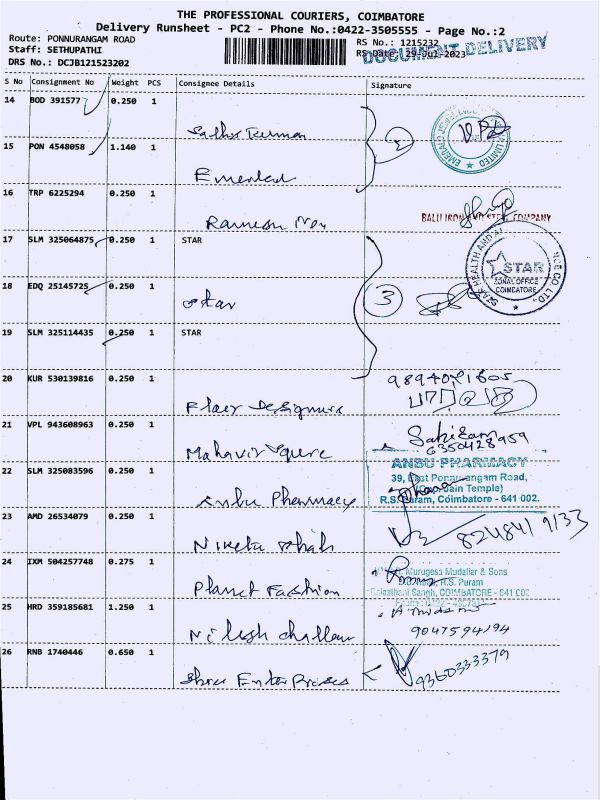 THE PROFESSIONAL COURIERS, COIMBATORE
Delivery Runsheet - PC2 - Phone No.:0422-3505555 - Page No.:2
Route: PONNURANGAM ROAD
Staff: SETHUPATHI
DRS No.: DCJB121523202
RS No.: 1215232
RS Date: 29-Jul-2023
DOCUMENT DELIVERY
S No Consignment No Weight PCS Consignee Details Signature
14 BOD 391577 0.250 1
15 PON 4548058 1.140 1
EMERALD LIMITED
16 TRP 6225294 0.250 1
Ramesh
BALU IRON AND STEEL COMPANY
17 SLM 325064875 0.250 1 STAR
18 EDQ 25145725 0.250 1 Star
3
STAR HEALTH AND CO. LTD.
STAR
ZONAL OFFICE
COIMBATORE
19 SLM 325114435 0.250 1 STAR
20 KUR 530139816 0.250 1
21 VPL 943608963 0.250 1 Mahavir Square
6350428959
22 SLM 325083596 0.250 1 Anbu Pharmacy
ANBU PHARMACY
39, East Ponnurangam Road,
(Opp. Jain Temple)
R.S. Puram, Coimbatore - 641 002.
23 AMD 26534079 0.250 1 Niketa Shah
8248419133
24 IXM 504257748 0.275 1 Planet Fashion
Murugesa Mudaliar & Sons
R.S. Puram
COIMBATORE - 641 002
25 HRD 359185681 1.250 1 Nilesh
9047594194
26 RNB 1740446 0.650 1 Shree Enterprises
9360333379